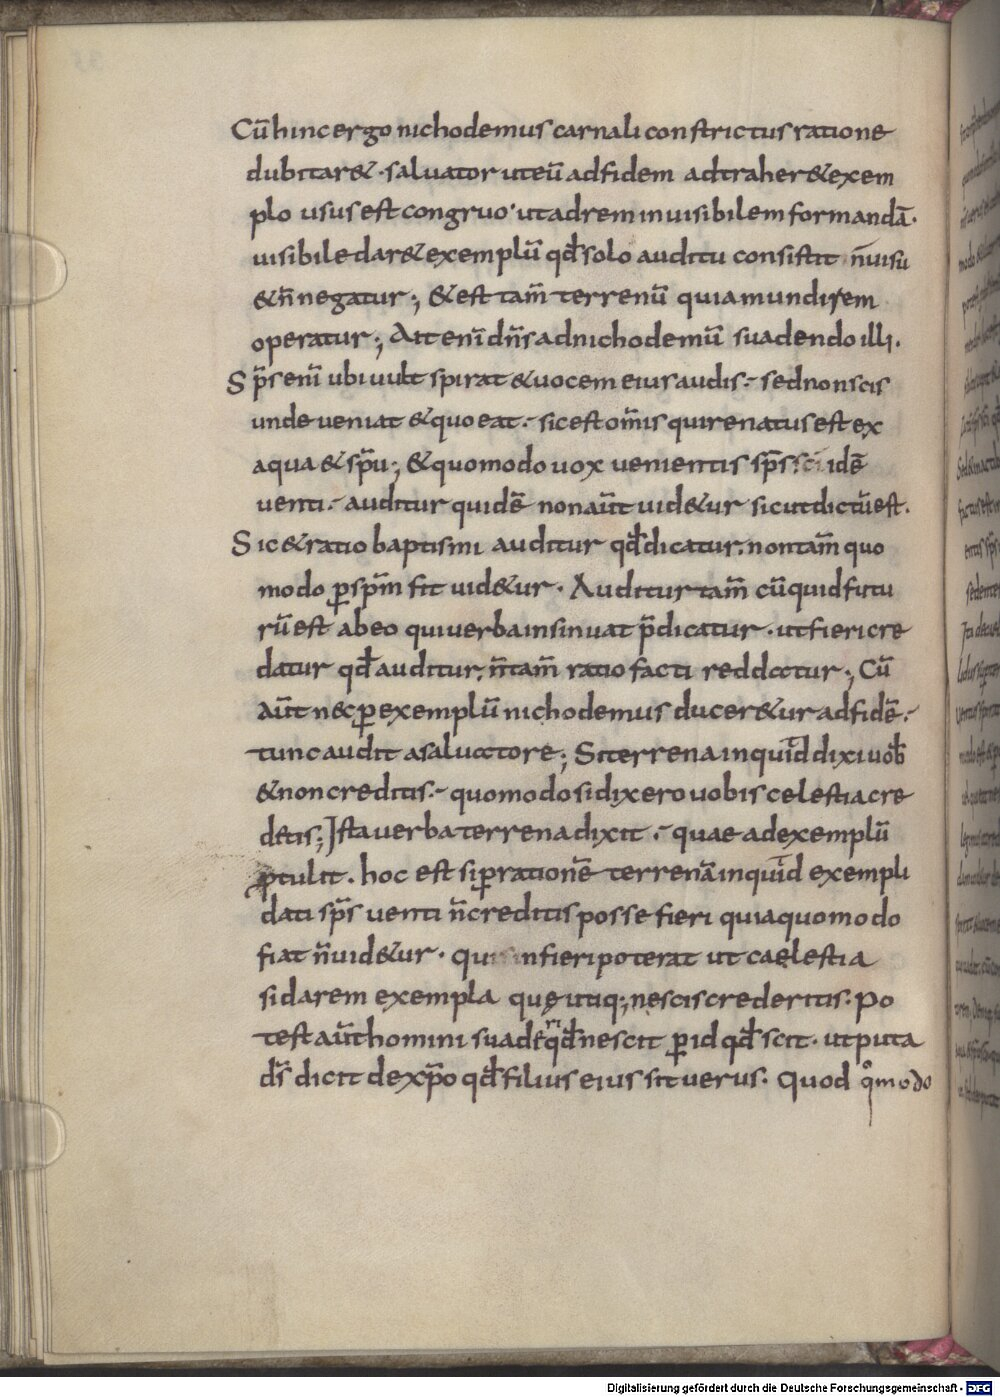 Cū hinc ergo nichodemus carnali constrictus ratione
dubitar& · saluator ut eū ad fidem adtraher& exem
plo usus est congruo' ut ad rem inuisibilem formandā·
uisibile dar& exemplū qd̄ solo auditu consistit n̄ uisu
& n̄ negatur; & est tam̄ terrenū quia mundi rem
operatur; Ait eni dn̄s ad nichodemū suadendo illi.
Sp̄s eni ubi uult spirat & uocem eius audis· sed non scis
unde ueniat & quo eat· sic est om̄is qui renatus est ex
aqua & sp̄u; & quomodo uox uenientis sp̄s sci idē
uenti· auditur quidē non aūt uid&ur sicut dictū est·
Sic & ratio baptismi auditur qd̄ dicatur, non tam̄ quo
modo ꝑ sp̄m fit uid&ur · Auditur tam̄ cū quid futu
rū est ab eo qui uerba insinuat p̄dicatur · ut fieri cre
datur qd̄ auditur, n̄ tam̄ ratio facti redditur; Cū
aūt nec ꝑ exemplū nichodemus ducer&ur ad fidē·
tunc audit a saluatore; Si terrena inquid dixi uob̄
& non creditis· quomodo si dixero uobis celestia cre
detis; Ista uerba terrena dixit · quae ad exemplū
ꝓtulit . hoc est si ꝑ rationē terrenā inquid exempli
dati sp̄s uenti n̄ creditis posse fieri quia quomodo
fiat n̄ uid&ur · qui in fieri poterat ut caelestia
si darem exempla quę utiq; nescis crederitis· Po
test aūt homini suaderi qd̄ nescit ꝑ id qd̄ scit · ut puta
d̄s dicit de xp̄o qd̄ filius eius sit uerus· Quod qͦmodo
Digitalisierung gefördert durch die Deutsche Forschungsgemeinschaft - DFG